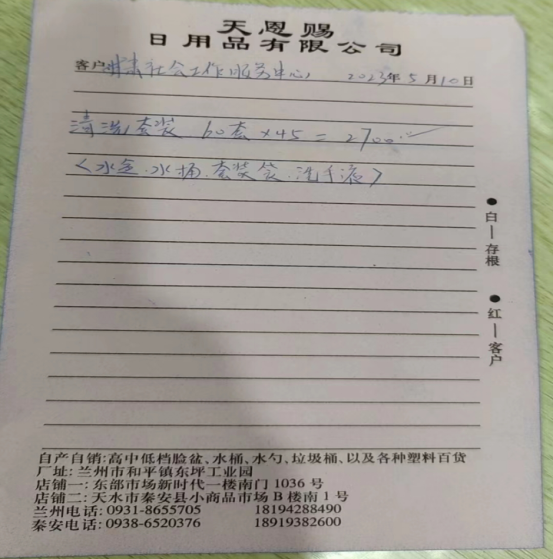 天恩赐
日用品有限公司
客户 社会工作服务中心 2023年5月10日
清洁套装 60套×45=2700.00
<水盆.水桶.套装袋.洗手液>
●白—存根
●红—客户
自产自销:高中低档脸盆、水桶、水勺,垃圾桶、以及各种塑料百货
厂址:兰州市和平镇东坪工业园
店铺一:东部市场新时代一楼南门 1036 号
店铺二:天水市秦安县小商品市场 B 楼南 1 号
兰州电话:0931-8655705 18194288490
秦安电话:0938-6520376 18919382600